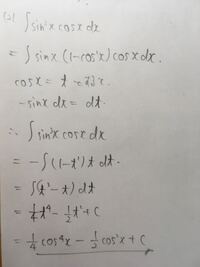 (2) ∫ sin³x cosx dx
= ∫ sinx (1-cos²x) cosx dx.
cosx = t とおくと.
-sinx dx = dt.
∴ ∫ sin³x cosx dx
= -∫ (1-t²) t dt.
= ∫(t³-t) dt
= 1/4 t⁴ - 1/2 t² + C
= 1/4 cos⁴x - 1/2 cos²x + C